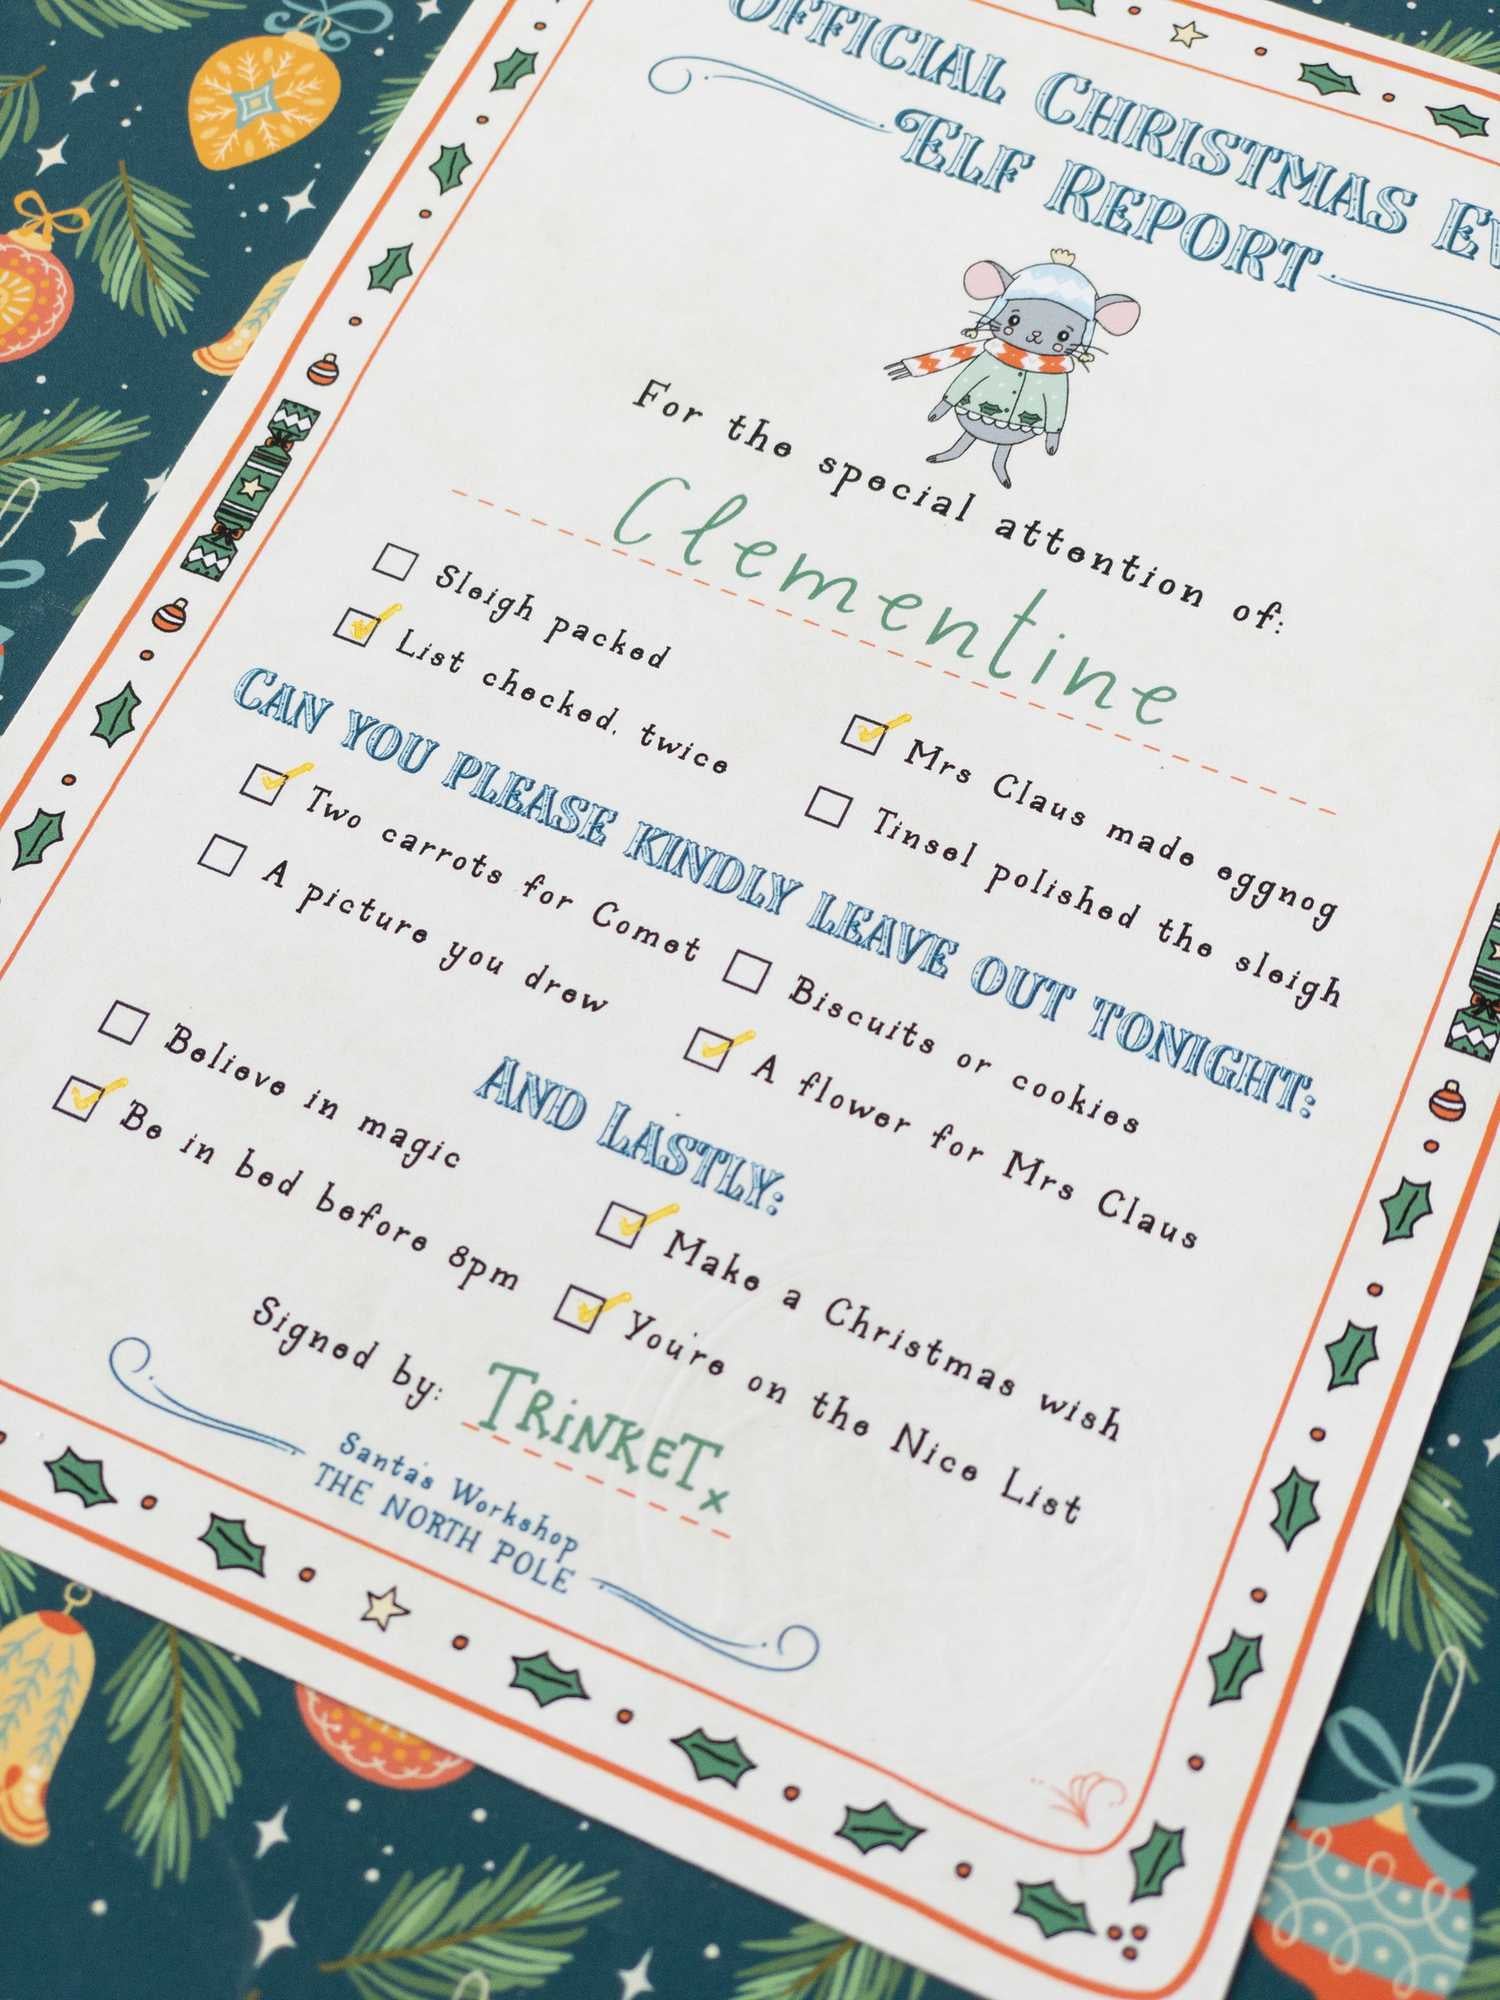 OFFICIAL CHRISTMAS
ELF REPORT
For the special attention of:
Clementine
Sleigh packed
List checked, twice
Mrs Claus made eggnog
Tinsel polished the sleigh
CAN YOU PLEASE KINDLY LEAVE OUT TONIGHT:
Two carrots for Comet
A picture you drew
Biscuits or cookies
A flower for Mrs Claus
AND LASTLY:
Believe in magic
Be in bed before 8pm
Make a Christmas wish
You're on the Nice List
Signed by: TRiNKET x
Santa's Workshop
THE NORTH POLE